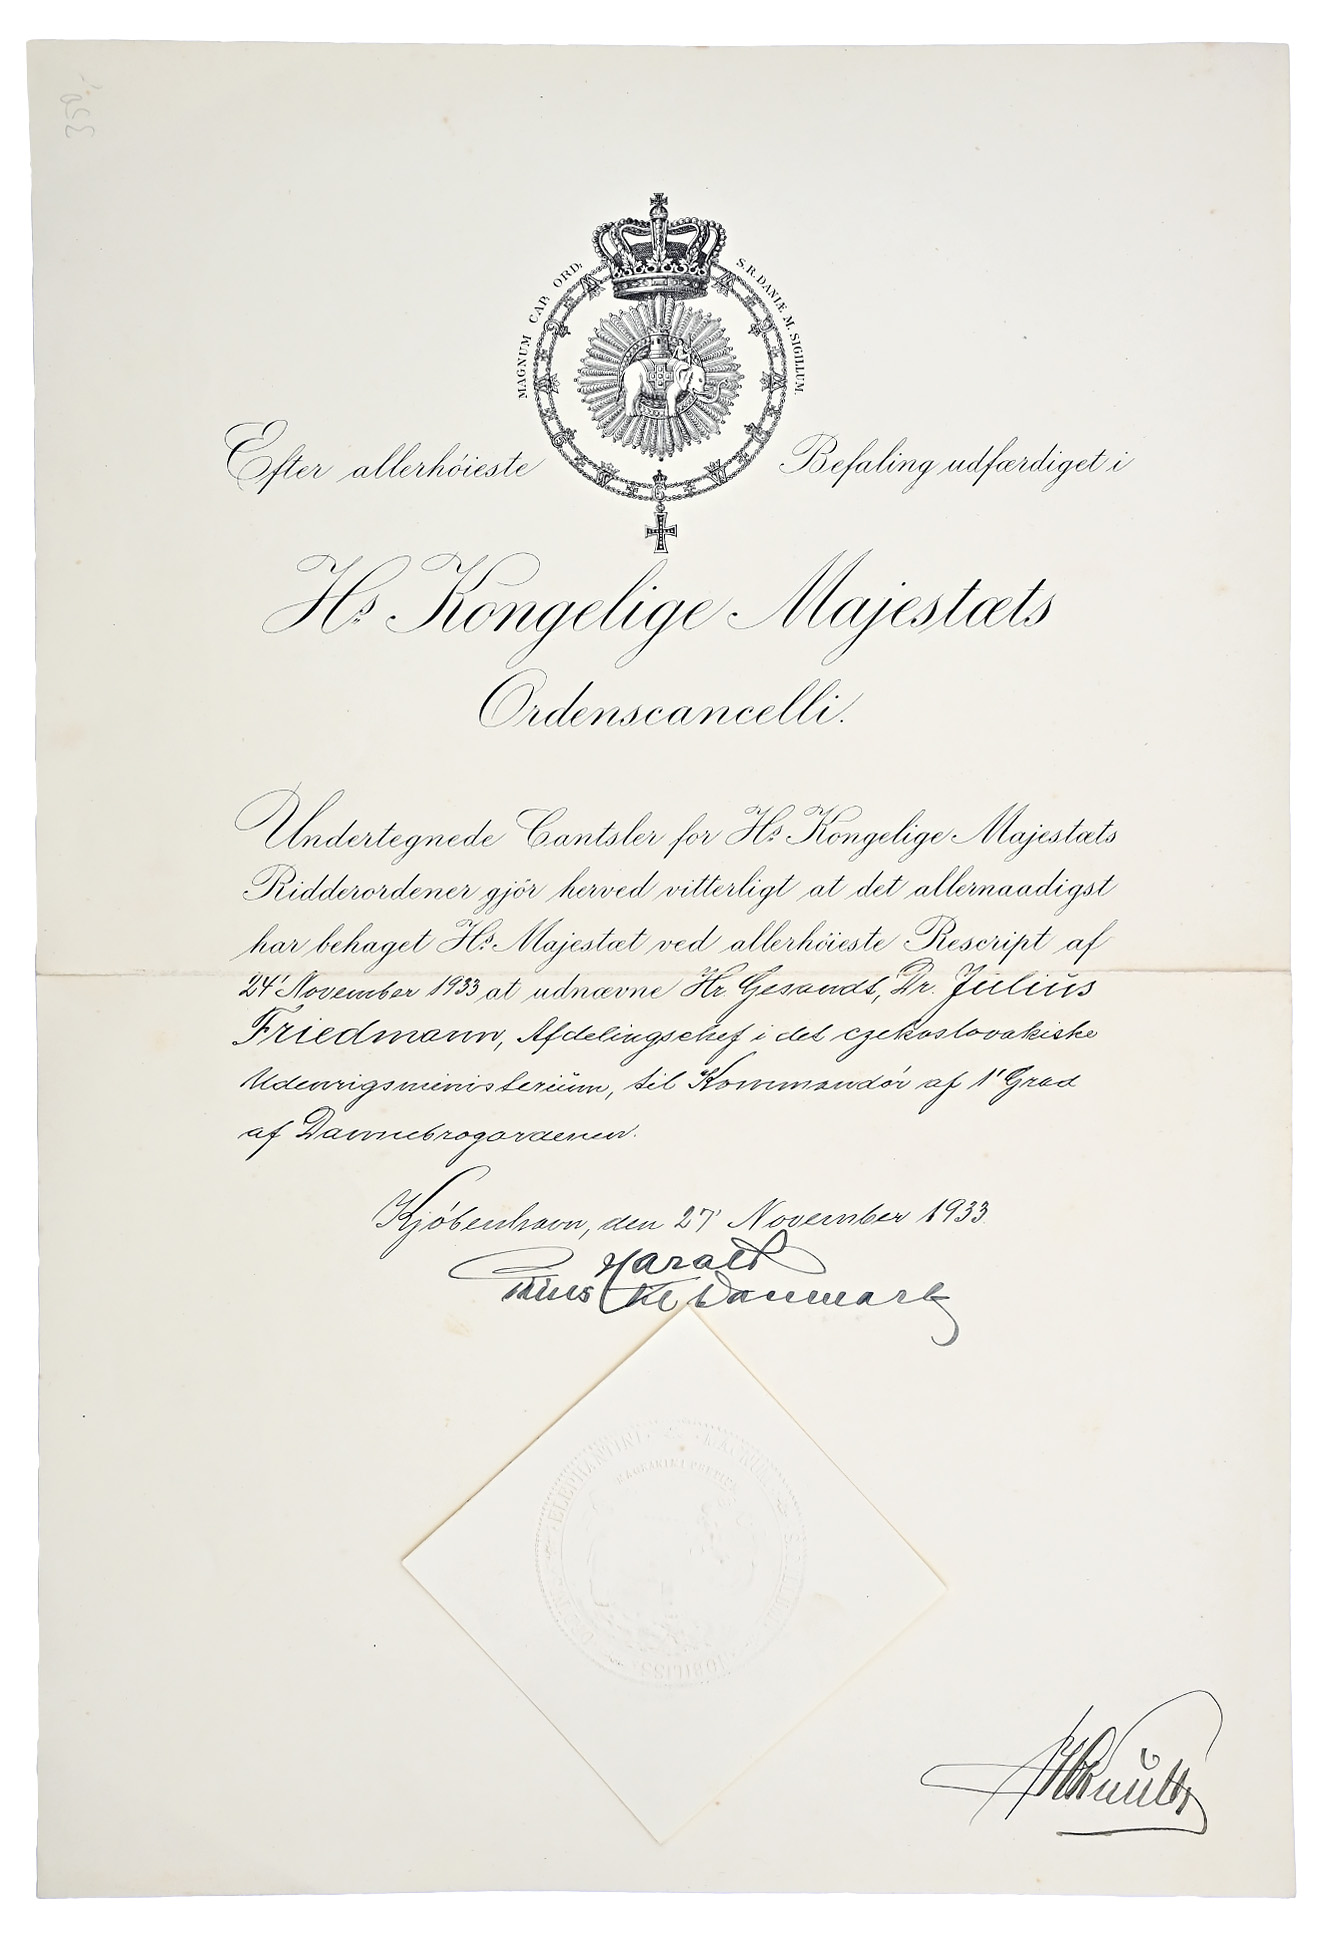 MAGNUM CAP. ORD. S. R. DANIÆ M. SIGILLUM.
Efter allerhöieste Befaling udfærdiget i
Hs. Kongelige Majestæts
Ordenscancelli.
Undertegnede Cantsler for Hs. Kongelige Majestæts
Ridderordener gjör herved vitterligt at det allernaadigst
har behaget Hs. Majestæt ved allerhöieste Rescript af
24' November 1933 at udnævne Hr. Gesandt, Dr. Julius
Friedmann, Afdelingschef i det czekoslovakiske
Udenrigsministerium, til Kommandör af 1' Grad
af Dannebrogordenen.
Kjöbenhavn, den 27' November 1933
Harald
Prins til Danmark
ELEPHANTINI